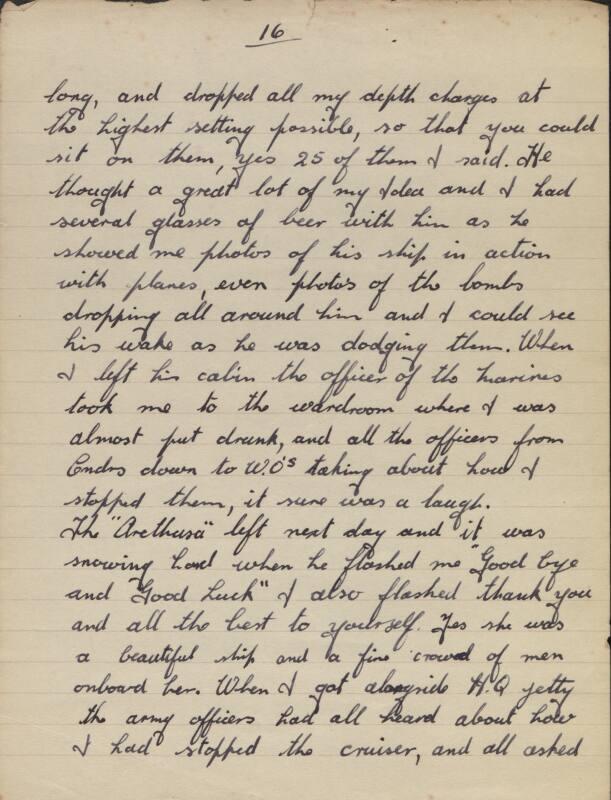 16
long, and dropped all my depth charges at
the highest setting possible, so that you could
sit on them, yes 25 of them I said. He
thought a great lot of my Idea and I had
several glasses of beer with him as he
showed me photos of his ship in action
with planes, even photos of the bombs
dropping all around him and I could see
his wake as he was dodging them. When
I left his cabin the officer of the marines
took me to the wardroom where I was
almost put drunk, and all the officers from
Cmdrs down to W.O's taking about how I
stopped them, it sure was a laugh.
The "Arethusa" left next day and it was
snowing hard when he flashed me "Good bye
and Good Luck" I also flashed thank you
and all the best to yourself. Yes she was
a beautiful ship and a fine crowd of men
onboard her. When I got alongside H.Q jetty
the army officers had all heard about how
I had stopped the cruiser, and all asked